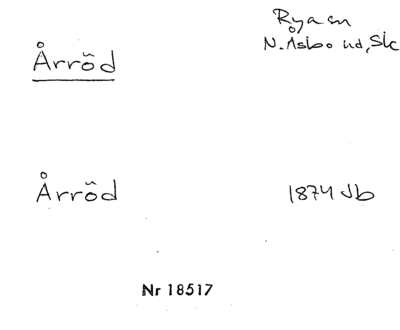 Rya sn
N. Åsbo hd, Sk
Årröd
Årröd 1874 Jb
Nr 18517